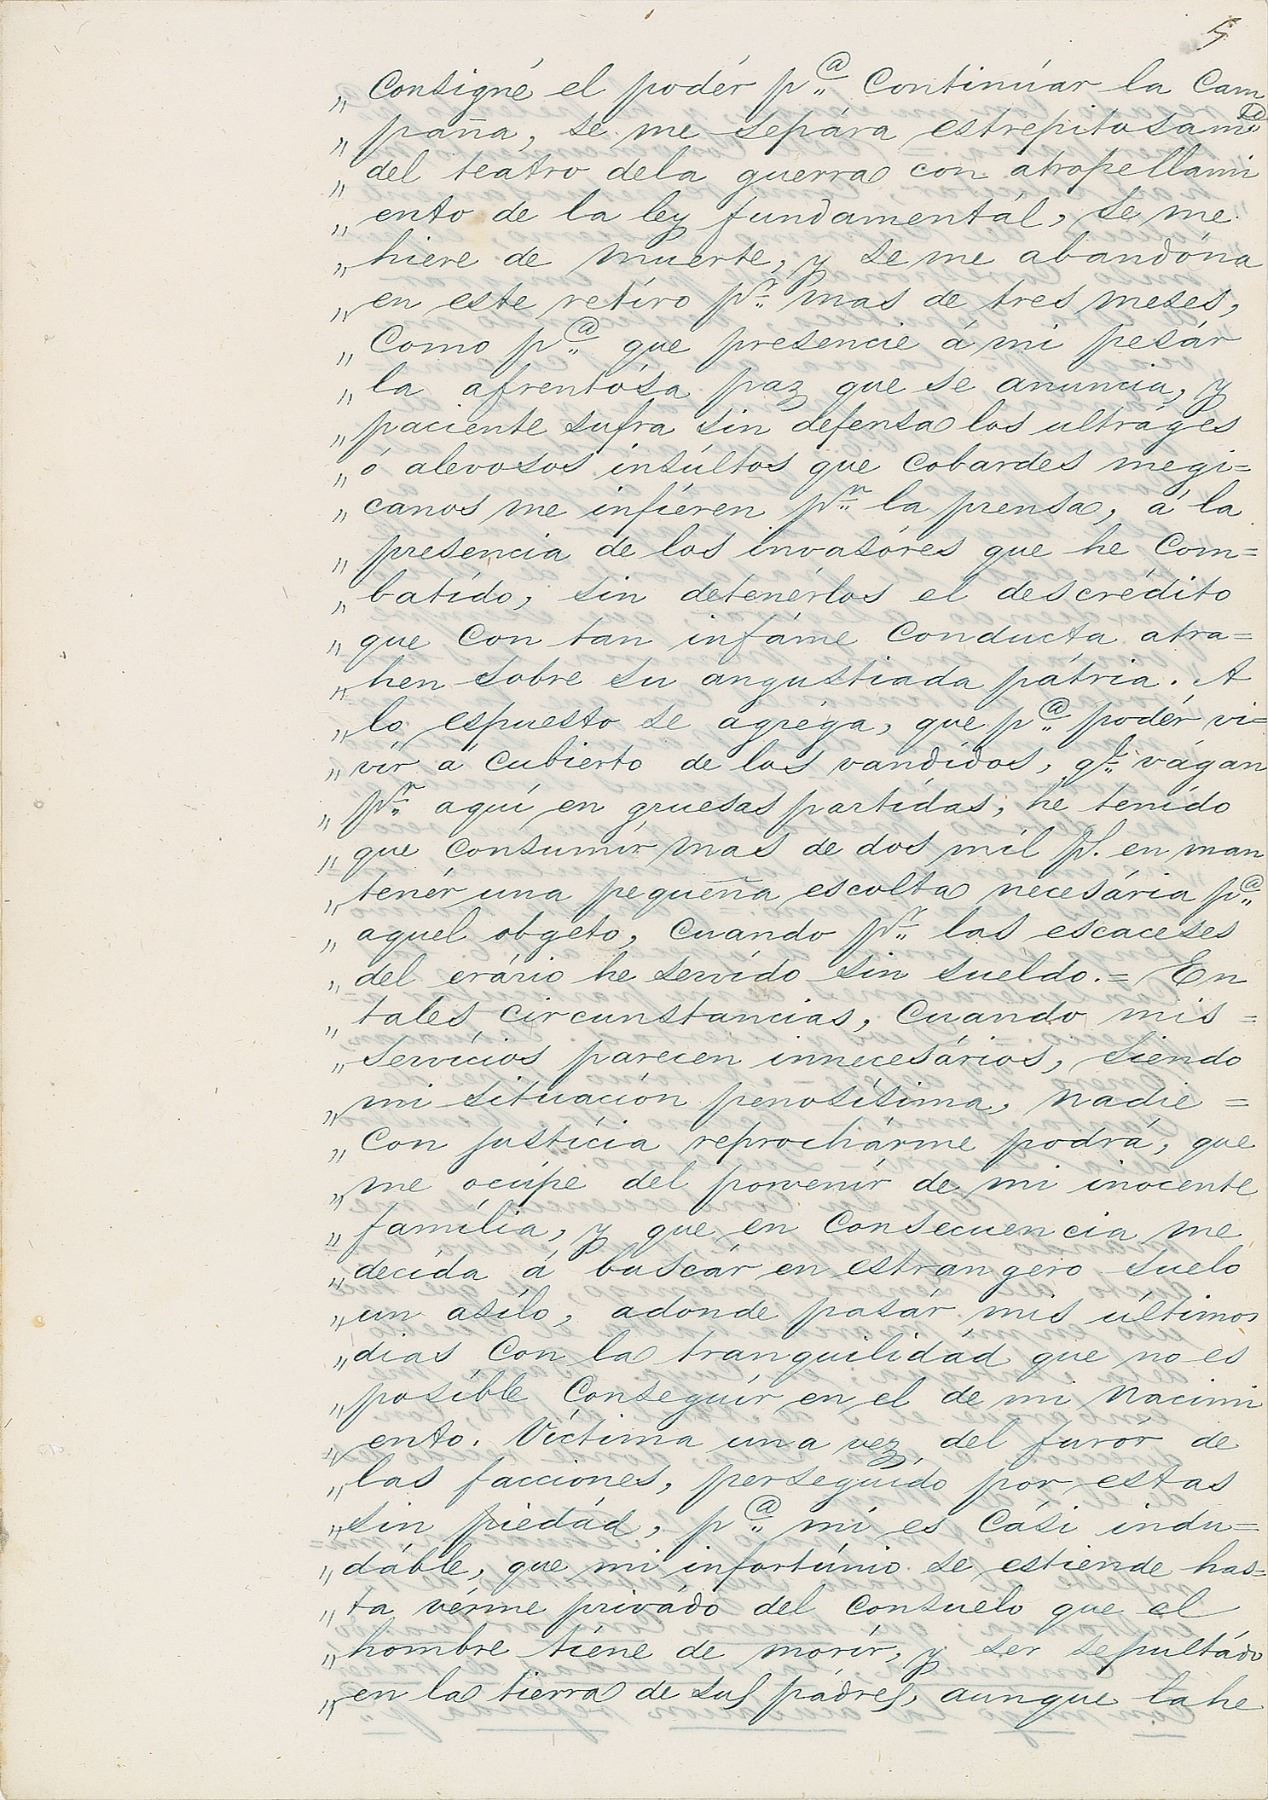 5
„ Consigné el podér p.ª Continúar la Cam
„ paña, se me sepára estrepitosam.te
„ del teatro dela guerra con atropellami
„ ento de la ley fundamentál, se me
„ hiere de muerte, y se me abandóna
„ en este retíro p.r mas de tres meses,
„ Como p.ª que presencie á mi pesár
„ la afrentósa paz que se anuncia, y
„ paciente sufra sin defensa los ultráges
„ ó alevosos insúltos que Cobardes megi=
„ canos me infíeren p.r la prensa, á la
„ presencia de los invasóres que he Com=
„ batído, sin detenérlos el descrédito
„ que Con tan infáme Conducta atra=
„ hen sobre su angustiada pátria. A
„ lo espuesto se agréga, que p.ª podér vi=
„ vír á Cubierto de los vandídos, q.e vágan
„ p.r aquí en gruesas partídas, he tenído
„ que Consumír mas de dos mil p.s en man
„ tenér una pequeña escolta necesária p.ª
„ aquel obgeto, Cuando p.r las escaceses
„ del erário he servído sin sueldo.= En
„ tales Circunstancias, Cuando mis =
„ servícios parecen innecesários, siendo
„ mi situación penosísima, nadie =
„ Con justícia reprochárme podrá, que
„ me ocúpe del porvenír de mi inocente
„ família, y que en Consecuencia me
„ decída á buscár en estrangero suelo
„ un asílo, adonde pasár mis últimos
„ dias Con la tranquilidád que no es
„ posíble Conseguír en el de mi Nacimi
„ ento. Víctima una vez del furór de
„ las facciones, perseguído por estas
„ sin piedád, p.ª mi es Cási indu=
„ dáble, que mi infortúnio se estiende has=
„ ta vérme privádo del Consuelo que el
„ hombre tiéne de morír, y ser sepultádo
„ en la tierra de sus pádres, aunque la he